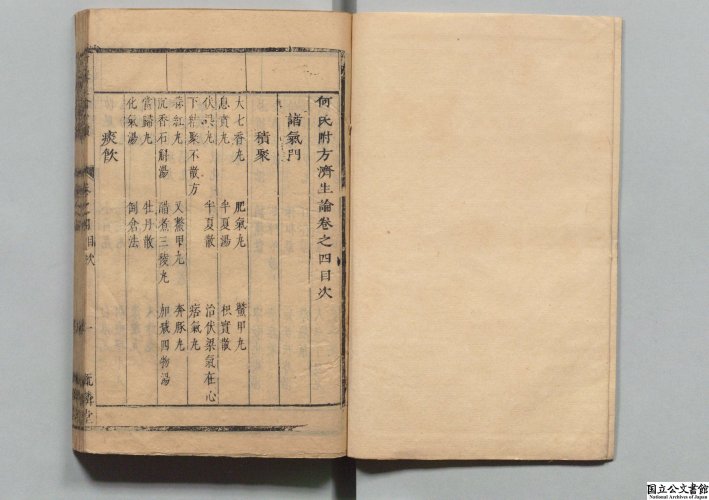 何氏附方濟生論卷之四目次
諸氣門
積聚
大七香丸 肥氣丸 鱉甲丸
息賁丸 半夏湯 枳實散
伏梁丸 半夏散 治伏梁氣在心
下積聚不散方 痞氣丸
紅丸 又鱉甲丸 奔豚丸
沉香石斛湯 醋煮三稜丸 加減四物湯
當歸丸 牡丹散
化氣湯 倒倉法
痰飲
卷之四目次 一
国立公文書館
National Archives of Japan